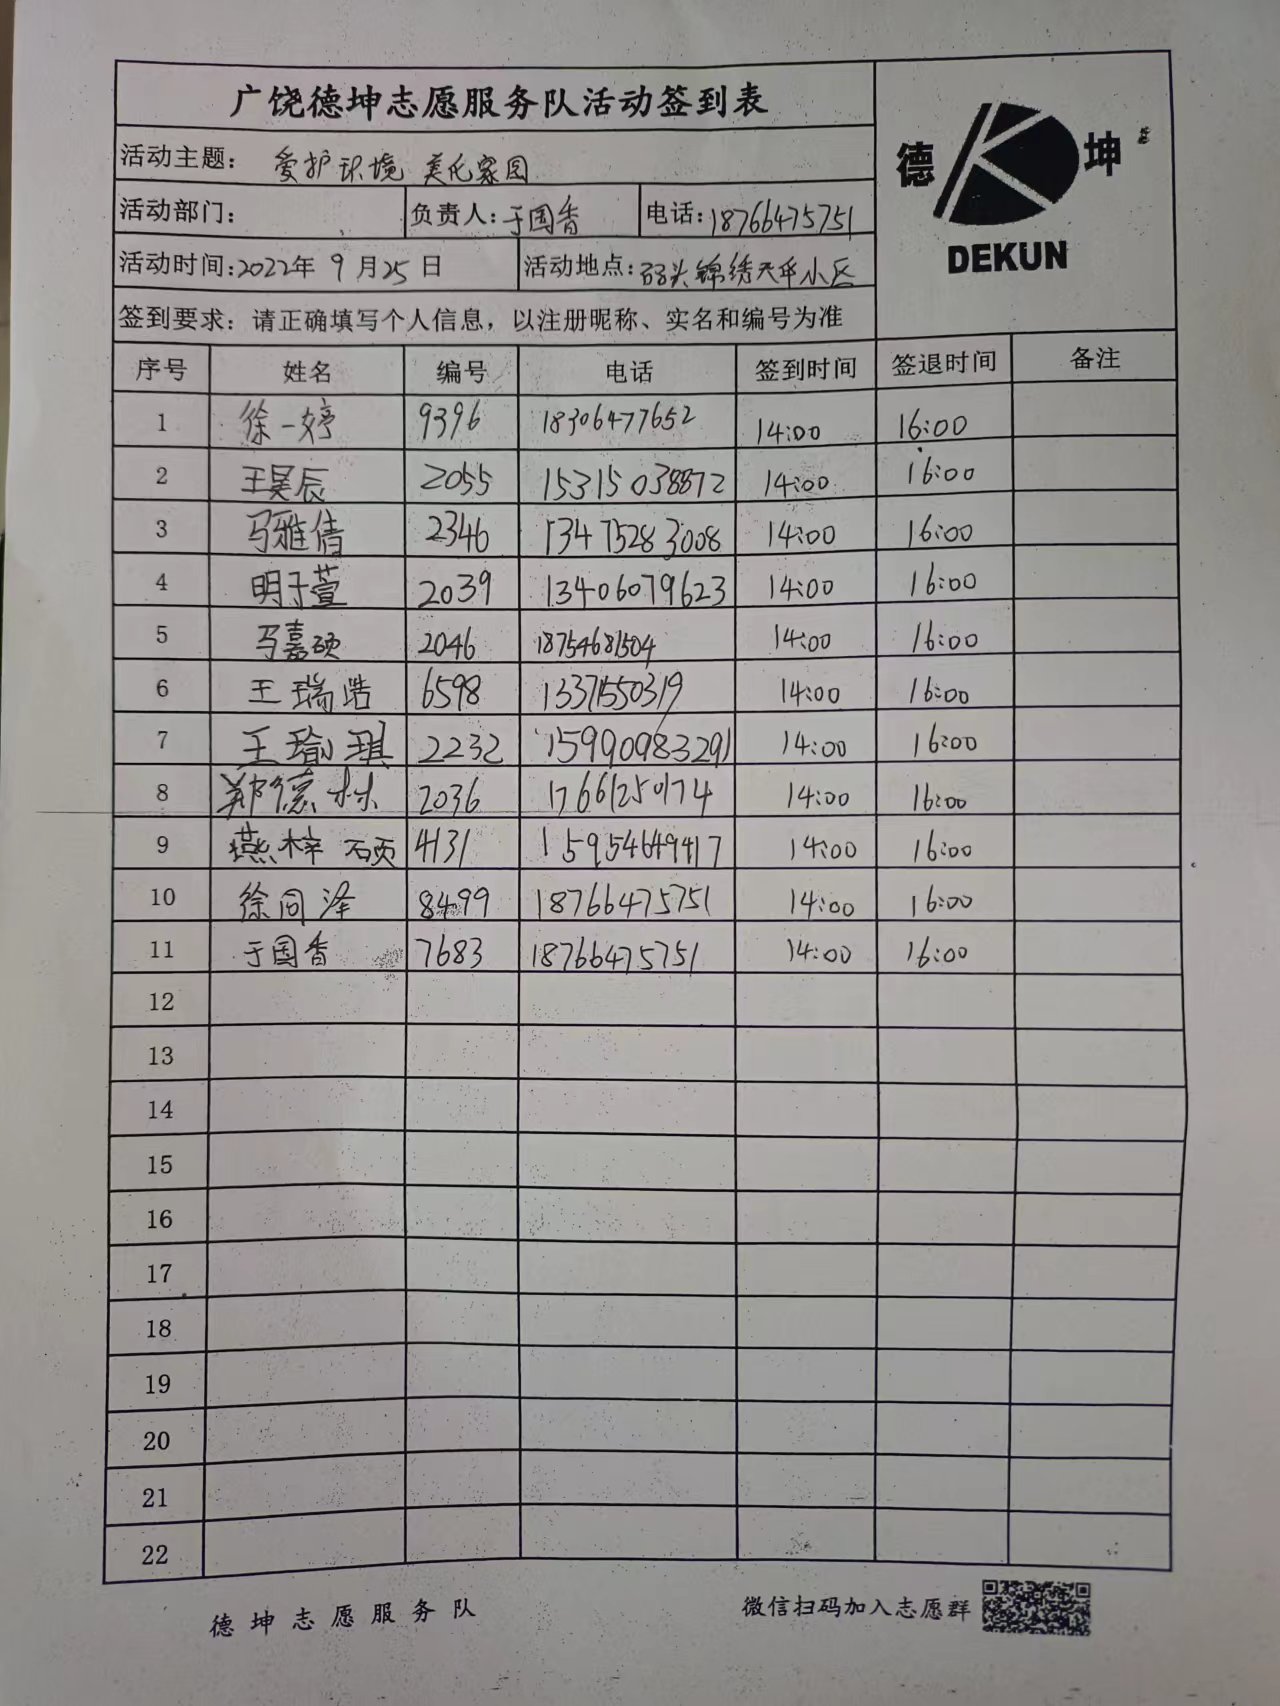 广饶德坤志愿服务队活动签到表
德 坤
DEKUN
活动主题： 爱护环境 美化家园
活动部门： 负责人：于国香 电话：18766475751
活动时间：2022年 9 月 25 日 活动地点：码头锦绣天华小区
签到要求：请正确填写个人信息，以注册昵称、实名和编号为准
序号 姓名 编号 电话 签到时间 签退时间 备注
1 徐一婷 9396 18306477652 14:00 16:00
2 王昊辰 2055 15315038872 14:00 16:00
3 马雅倩 2346 13475283008 14:00 16:00
4 明于萱 2039 13406079623 14:00 16:00
5 马嘉硕 2046 18754681504 14:00 16:00
6 王瑞浩 6598 13371550319 14:00 16:00
7 王瑜琪 2232 15990983291 14:00 16:00
8 郑德林 2036 17661250174 14:00 16:00
9 燕梓硕 4131 15954649417 14:00 16:00
10 徐同泽 8499 18766475751 14:00 16:00
11 于国香 7683 18766475751 14:00 16:00
12
13
14
15
16
17
18
19
20
21
22
德坤志愿服务队 微信扫码加入志愿群